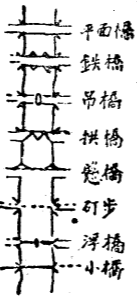 平面橋
鉄橋
吊橋
拱橋
懸橋
矴步
浮橋
小橋